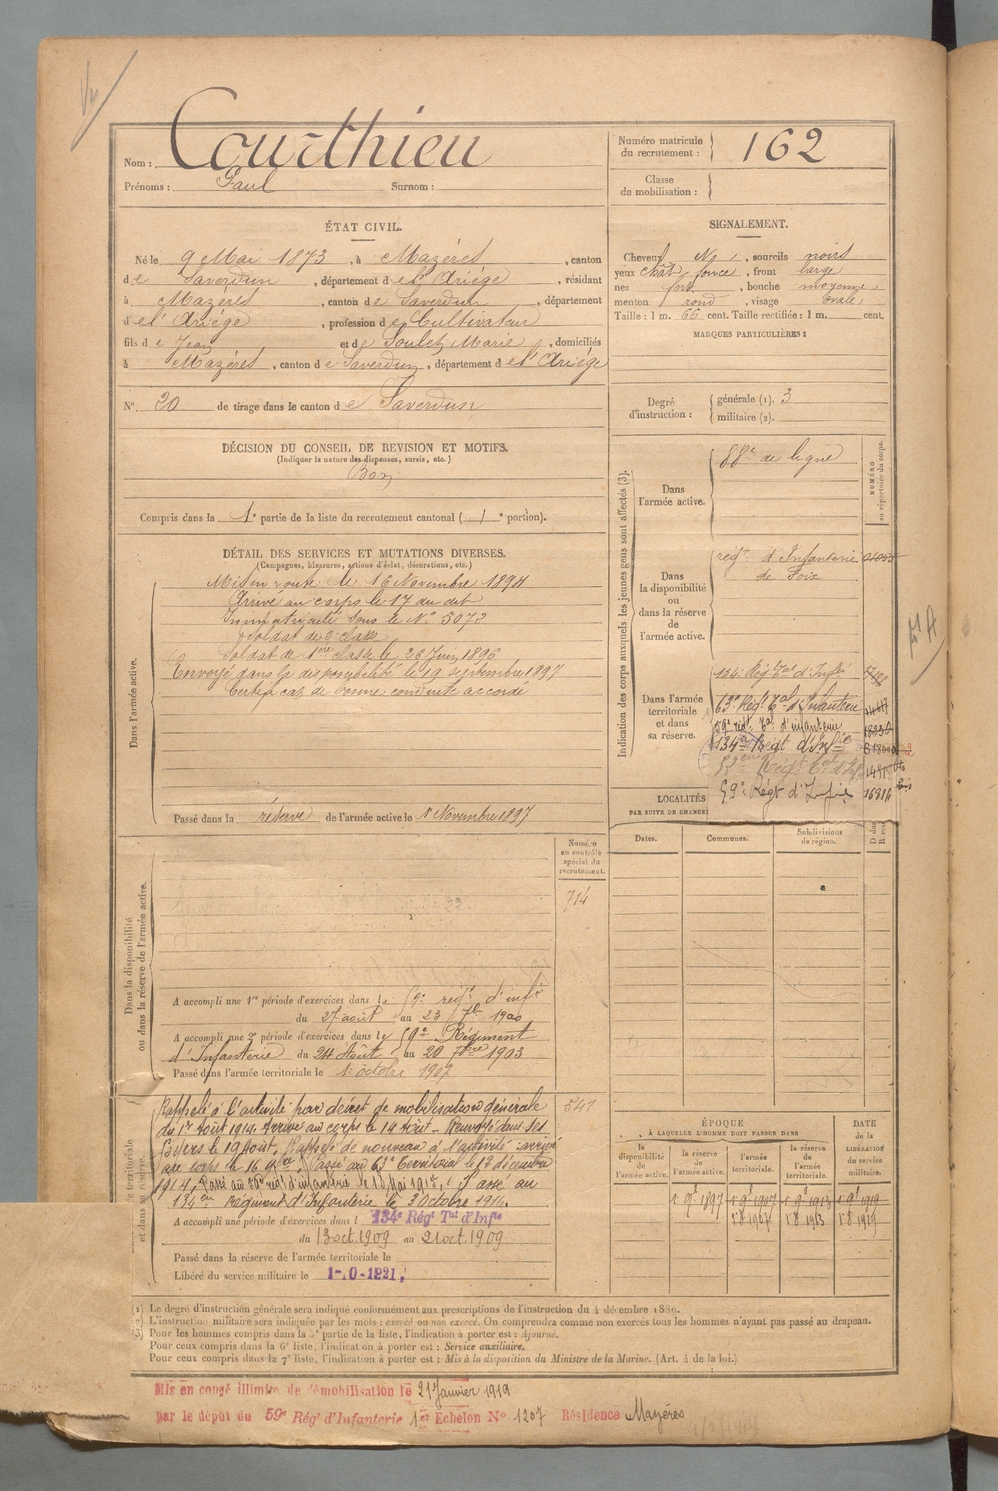 Nom : Courthieu
Prénoms : Paul Surnom :
Numéro matricule du recrutement : 162
Classe de mobilisation :
ÉTAT CIVIL.
Né le 9 Mai 1873, à Mazères, canton
de Saverdun, département de l'Ariège, résidant
à Mazères, canton de Saverdun, département
de l'Ariège, profession de Cultivateur
fils de Jean et de Soulet Marie, domiciliés
à Mazères, canton de Saverdun, département de l'Ariège
N° 20 de tirage dans le canton de Saverdun
SIGNALEMENT.
Cheveux , sourcils noirs
yeux chat. foncé, front large
nez , bouche moyenne
menton rond, visage ovale
Taille : 1 m. 66 cent. Taille rectifiée : 1 m. cent.
MARQUES PARTICULIÈRES :
Degré d'instruction : générale (1). 3
militaire (2).
DÉCISION DU CONSEIL DE REVISION ET MOTIFS.
(Indiquer la nature des dispenses, sursis, etc.)
Bon
Compris dans la 1e partie de la liste du recrutement cantonal ( 1e portion).
DÉTAIL DES SERVICES ET MUTATIONS DIVERSES.
(Campagnes, blessures, actions d'éclat, décorations, etc.)
Dans l'armée active.
Mis en route le 16 Novembre 1894
Arrivé au corps le 17 du dit
Immatriculé sous le N° 5072
Soldat de 2e classe
Soldat de 1ère classe le 26 Juin 1896
Envoyé dans la disponibilité le 19 septembre 1897
Certificat de bonne conduite accordé
Passé dans la réserve de l'armée active le 1 Novembre 1897
Indication des corps auxquels les jeunes gens sont affectés (3).
NUMÉRO au répertoire du corps.
Dans l'armée active.
88e de ligne
Dans la disponibilité ou dans la réserve de l'armée active.
régt d'Infanterie
de Foix
Dans l'armée territoriale et dans sa réserve.
134e Régt Tal d'Infie
63e Régt Tal d'Infanterie
59e régt Tal d'infanterie
134e Régt d'Infie
59e Régt d'Infie
16314
LOCALITÉS
PAR SUITE DE CHANGE
Dates. Communes. Subdivisions de région.
Dans la disponibilité ou dans la réserve de l'armée active.
Numéro au contrôle spécial du recrutement.
714
A accompli une 1re période d'exercices dans le 59e régt d'infie
du 27 août au 23 7bre 1900
A accompli une 2e période d'exercices dans le 59e Régiment
d'Infanterie du 24 Août au 20 7bre 1903
Passé dans l'armée territoriale le 1 octobre 1907
541
Rappelé à l'activité par décret de mobilisation générale
du 1er Août 1914. Arrivé au corps le 14 Août. Renvoyé dans ses
foyers le 19 Août. Rappelé de nouveau à l'activité arrivé
au corps le 16 9bre. Passé au 63e Territorial le 12 décembre
1914. Passé au 59e régt d'infanterie le 1 Mai 1915. Passé au
134e Régiment d'Infanterie le 3 Octobre 1914.
A accompli une période d'exercices dans l 134e Régt Tal d'Infie
du 13 oct. 1909 au 21 oct. 1909
Passé dans la réserve de l'armée territoriale le
Libéré du service militaire le 1-.0-1921.
ÉPOQUE
À LAQUELLE L'HOMME DOIT PASSER DANS
DATE de la LIBÉRATION du service militaire.
la disponibilité de l'armée active.
la réserve de l'armée active.
l'armée territoriale.
la réserve de l'armée territoriale.
1 9e 1897 1 9e 1907 1 9e 1913 1 9e 1919
1 8 1907 1 8 1913 1 8 1919
(1) Le degré d'instruction générale sera indiqué conformément aux prescriptions de l'instruction du 4 décembre 1889.
(2) L'instruction militaire sera indiquée par les mots : exercé ou non exercé. On comprendra comme non exercés tous les hommes n'ayant pas passé au drapeau.
(3) Pour les hommes compris dans la 5e partie de la liste, l'indication à porter est : Ajourné.
Pour ceux compris dans la 6e liste, l'indication à porter est : Service auxiliaire.
Pour ceux compris dans la 7e liste, l'indication à porter est : Mis à la disposition du Ministre de la Marine. (Art. 4 de la loi.)
Mis en congé illimité de démobilisation le 21 Janvier 1919
par le dépôt du 59e Régt d'Infanterie 1er Echelon N° 1207 Résidence Mazères